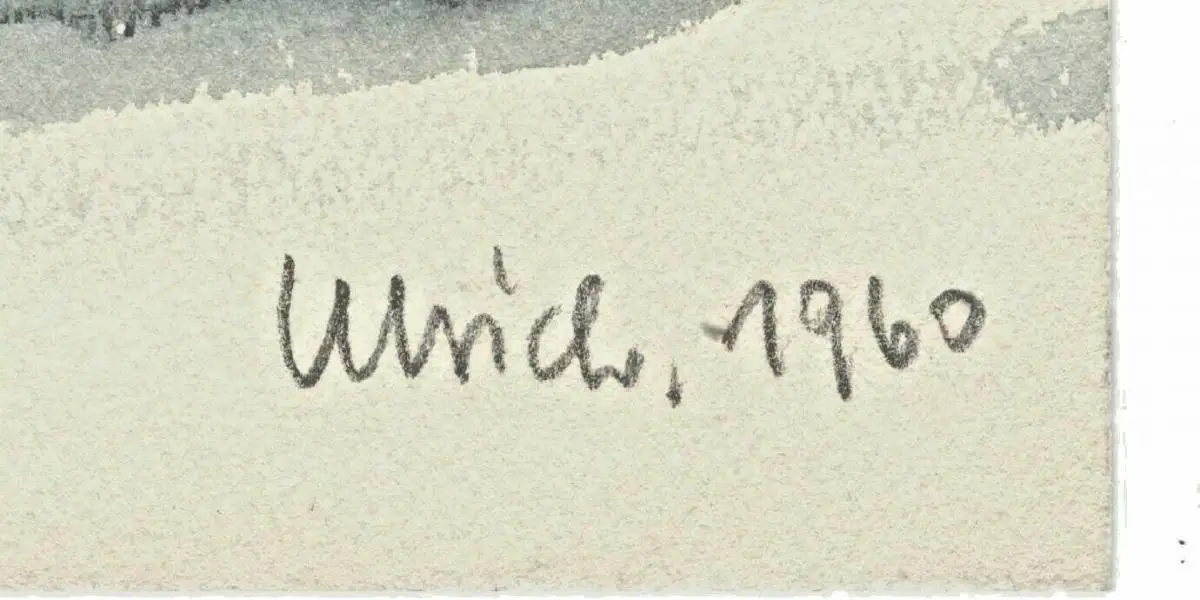 Ulrich, 1960